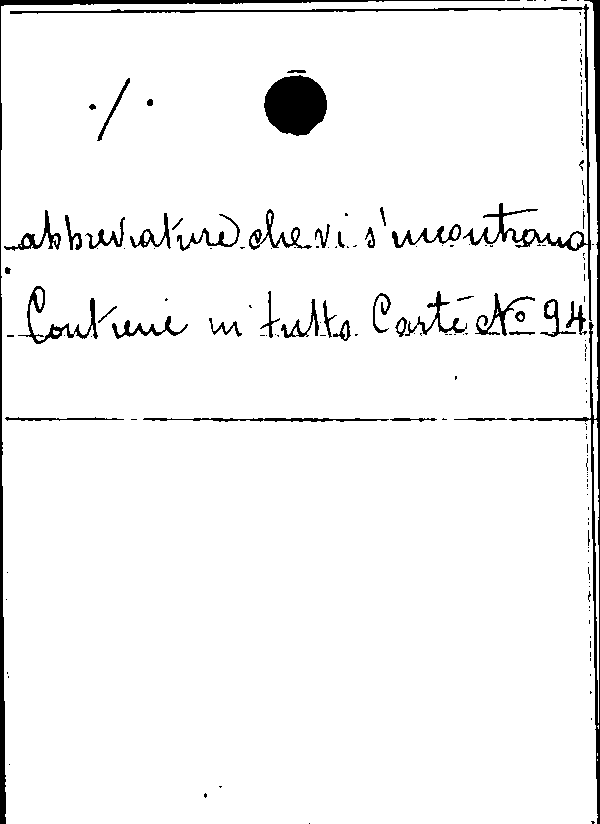 ./.
abbreviature che vi s'incontrano
Contiene in tutto Carte No 94.